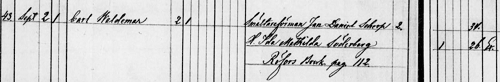 43. Sept 2 1 Carl Waldemar 2 1 Smältareförman Jan Daniel Schorp 2. 34.
H. Ida Mathilda Söderberg 1 26
Röfors Bruk pag 112.